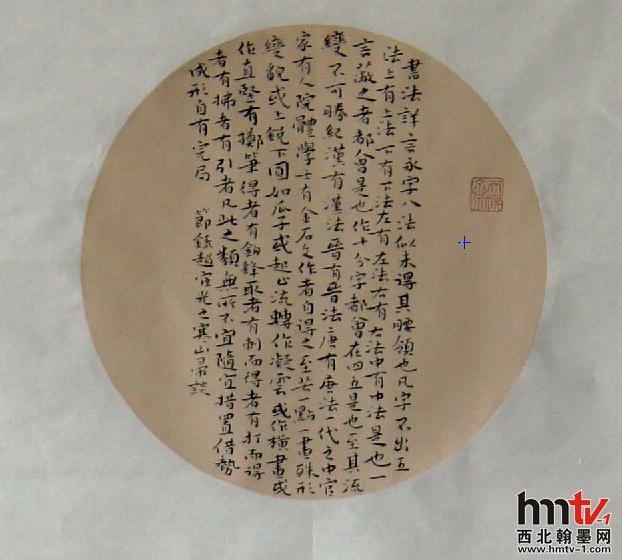 書法詳言永字八法似未得其腰領也凡字不出五
法上有上法下有下法左有左法右有右法中有中法是也一
言蔽之者都會是也作十分字都會在四五是也至其流
變不可勝紀漢有漢法晉有晉法唐有唐法一代之中官
家有人院體學士有金石文作者自得之至若一點一畫殊形
變貌或上銳下圓如瓜子或起止流轉作凝雲或作橫畫或
作直豎有擲筆得者有鉤鋒取者有刺而得者有打而得
者有拂者有引者凡此之類無所不宜隨宜措置借勢
成形自有完局 節錄趙宧光之寒山帚談
hmtv-1
西北翰墨网
www.hmtv-1.com